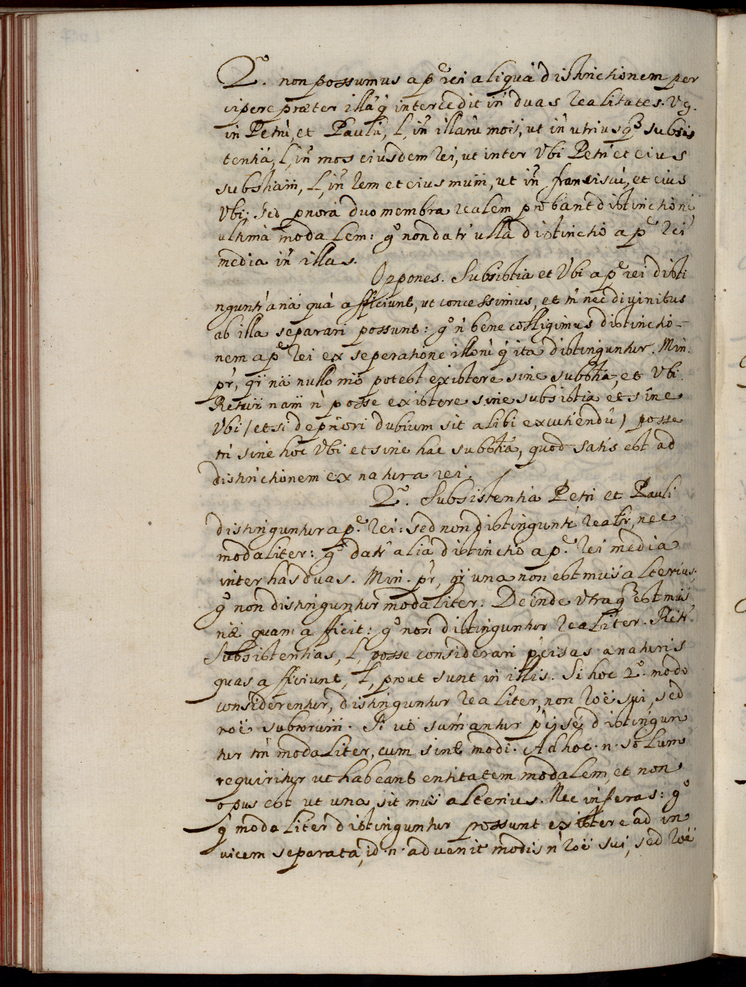 2.º non possumus a p.e rei aliquã distinctionem per
cipere præter illã q̃ intercedit iñ duas realitates. Vg.
in Petrũ, et Paulũ, l, iñ illarũ mos, ut iñ utriusq3 subsis
tentiã, l, iñ mos eiusdem rei, ut inter Vbi Petri et eius
subsñtiam, l, iñ rem et eius mum, ut iñ franciscũ, et eius
Vbi; sed priora duo membra realem probant distinctionẽ
ultimã modalem: gº non datr̃ ulla distinctio a p.e rei
media iñ illas.
Oppones. Subsistia et Vbi a p.e rei disti
nguntr̃ a nã quã afficiunt, ut concessimus, et tñ nec divinitus
ab illa separari possunt: gº ñ bene colligimus distinctio-
nem a p.e rei ex seperatione illorũ q̃ ita distinguntur. Min.
pr̃, qi nã nullo mõ potest existere sine subsistã, et Vbi
Rerum nam ñ posse existere sine subsistiã et sine
Vbi (etsi de priori dubium sit alibi excutiendũ) posse
tñ sine hoc Vbi et sine hac subsistã, quod satis est ad
distinctionem ex natura rei.
2.º Subsistentia Petri et Pauli
distinguntur a p.e rei: sed non distinguntr̃ realtr̃, nec
modaliter: gº datr̃ alia distinctio a p.e rei media
inter has duas. Min. pr̃, qi una non est mus alterius,
gº non distinguntur modaliter. Deinde utraq3 est mus
næ quam afficit: gº non distinguntur realiter. Retr̃.
Subsistentias, l, posse considerari p̃cisas a naturis
quas afficiunt, l, prout sunt in illis. Si hoc 2.º modo
considerentur, distinguntur realiter, non roẽ sui, sed
roẽ subiectorum. Si ut sumantur p̃ se distingun
tur tm̃ modaliter, cum sint modi. Ad hoc .n. solum
requiritur ut habeant entitatem modalem, et non
opus est ut una sit mus alterius. Nec inferas: gº
q̃ modaliter distinguntur possunt existere ad in
vicem separata, id .n. advenit modis ñ roẽ sui, sed roẽ